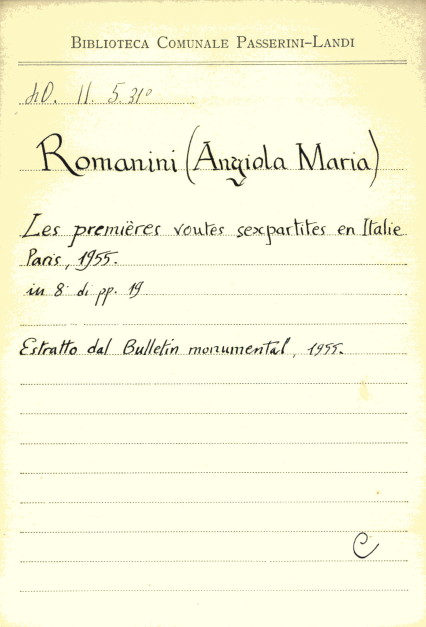 BIBLIOTECA COMUNALE PASSERINI-LANDI
hD. II. 5. 31º
Romanini (Angiola Maria)
Les premières voutes sexpartites en Italie
Paris, 1955.
in 8º di pp. 19
Estratto dal Bulletin monumental, 1955.
C